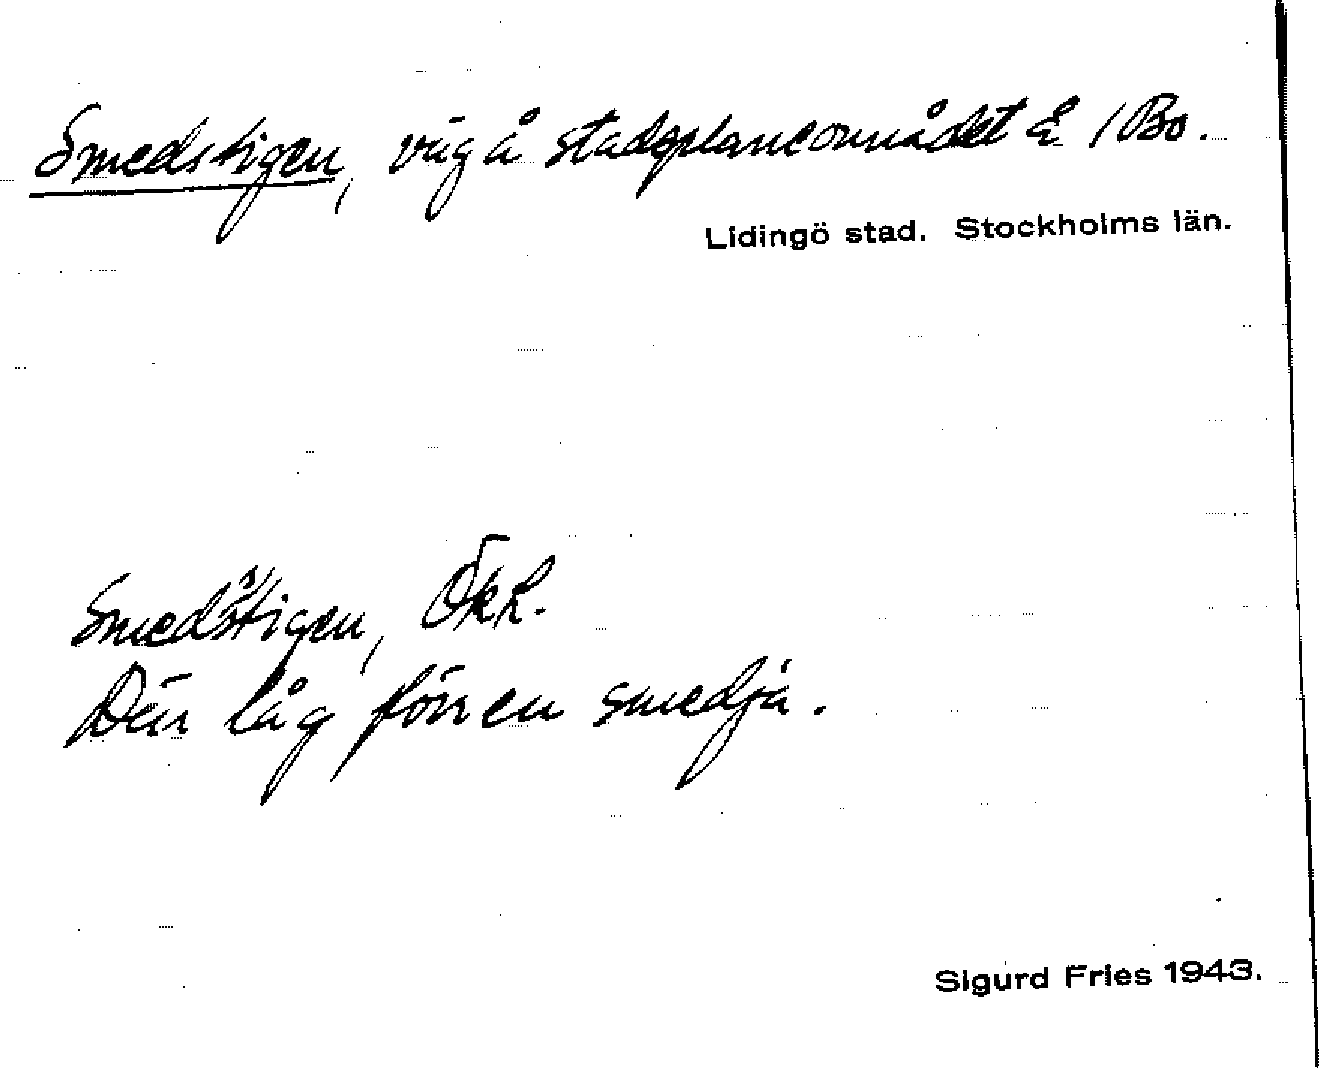 Smedstigen, väg å stadsplaneområdet å 1 Bo.
Lidingö stad. Stockholms län.
Smedstigen, ÖKR.
Där låg förr en smedja.
Sigurd Fries 1943.